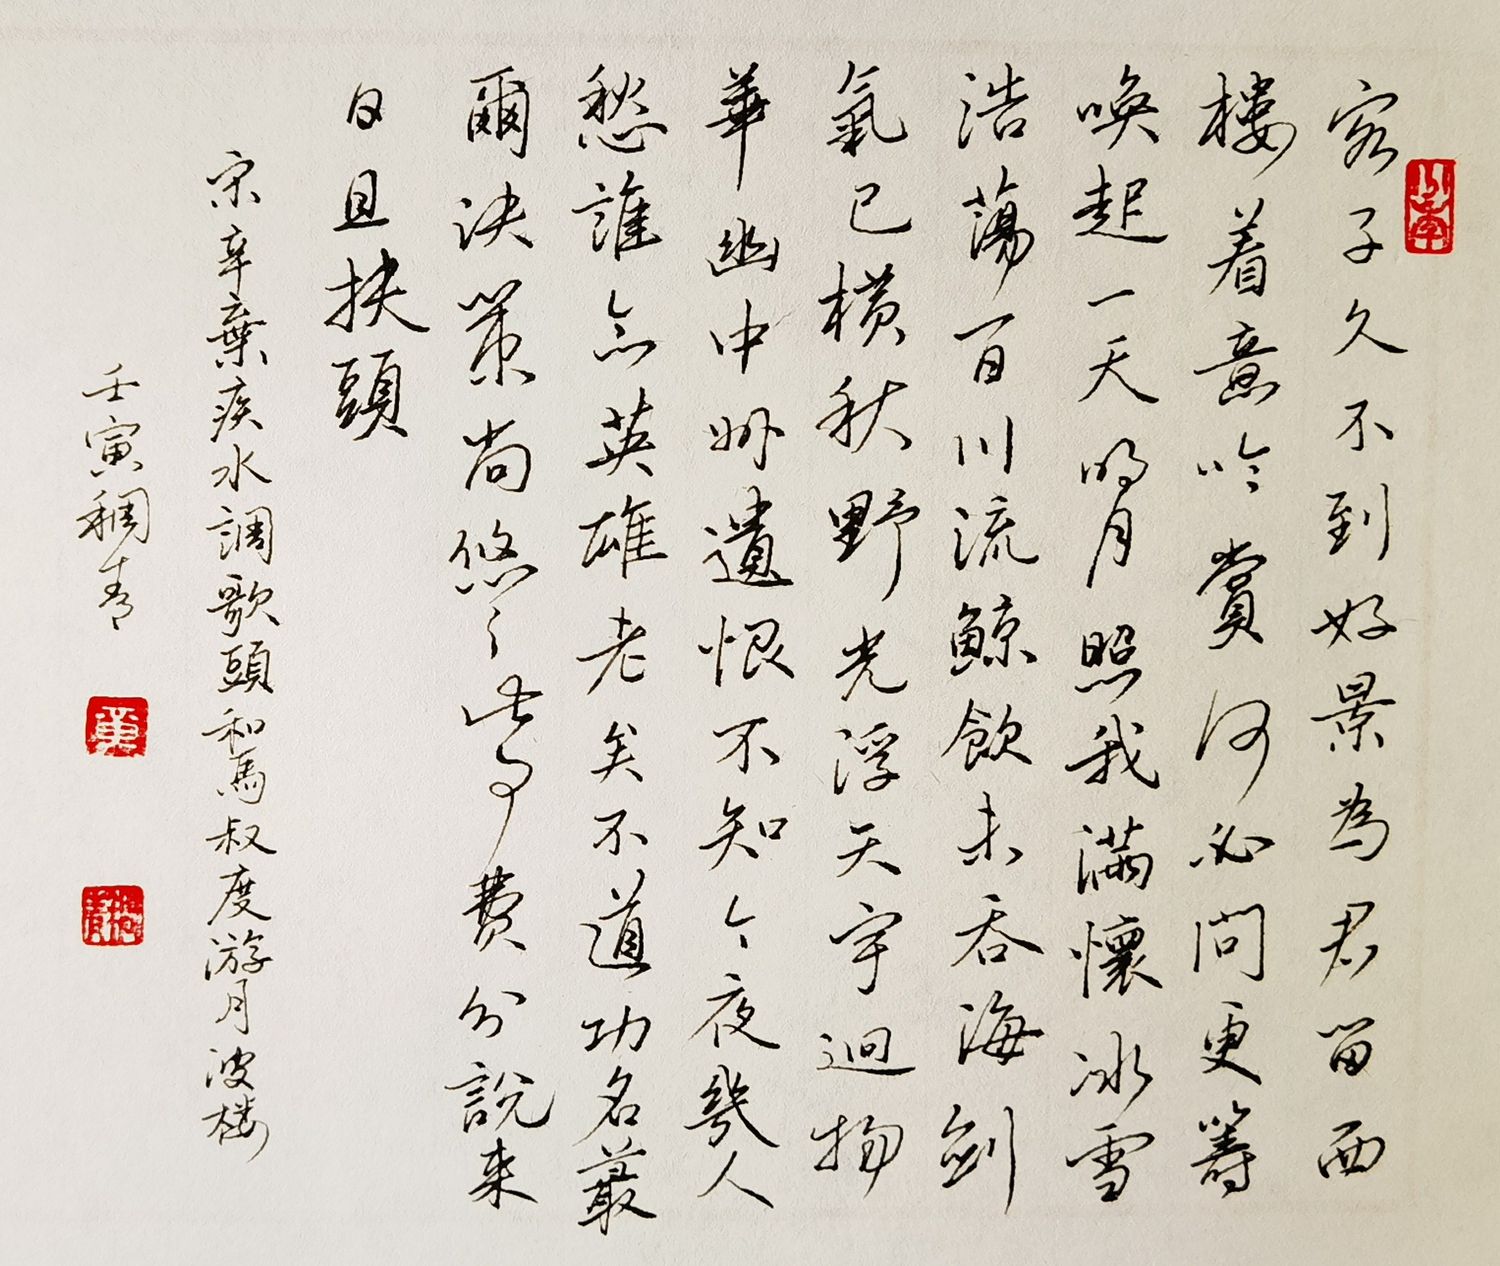 客子久不到好景為君留西
樓着意吟賞何必問更籌
喚起一天明月照我滿懷冰雪
浩蕩百川流鯨飲未吞海劍
氣已橫秋野光浮天宇迥物
華幽中州遺恨不知今夜幾人
愁誰念英雄老矣不道功名蕞
爾決策尚悠々此事費分說來
日且扶頭
宋辛棄疾水調歌頭和馬叔度游月波樓
壬寅稠青